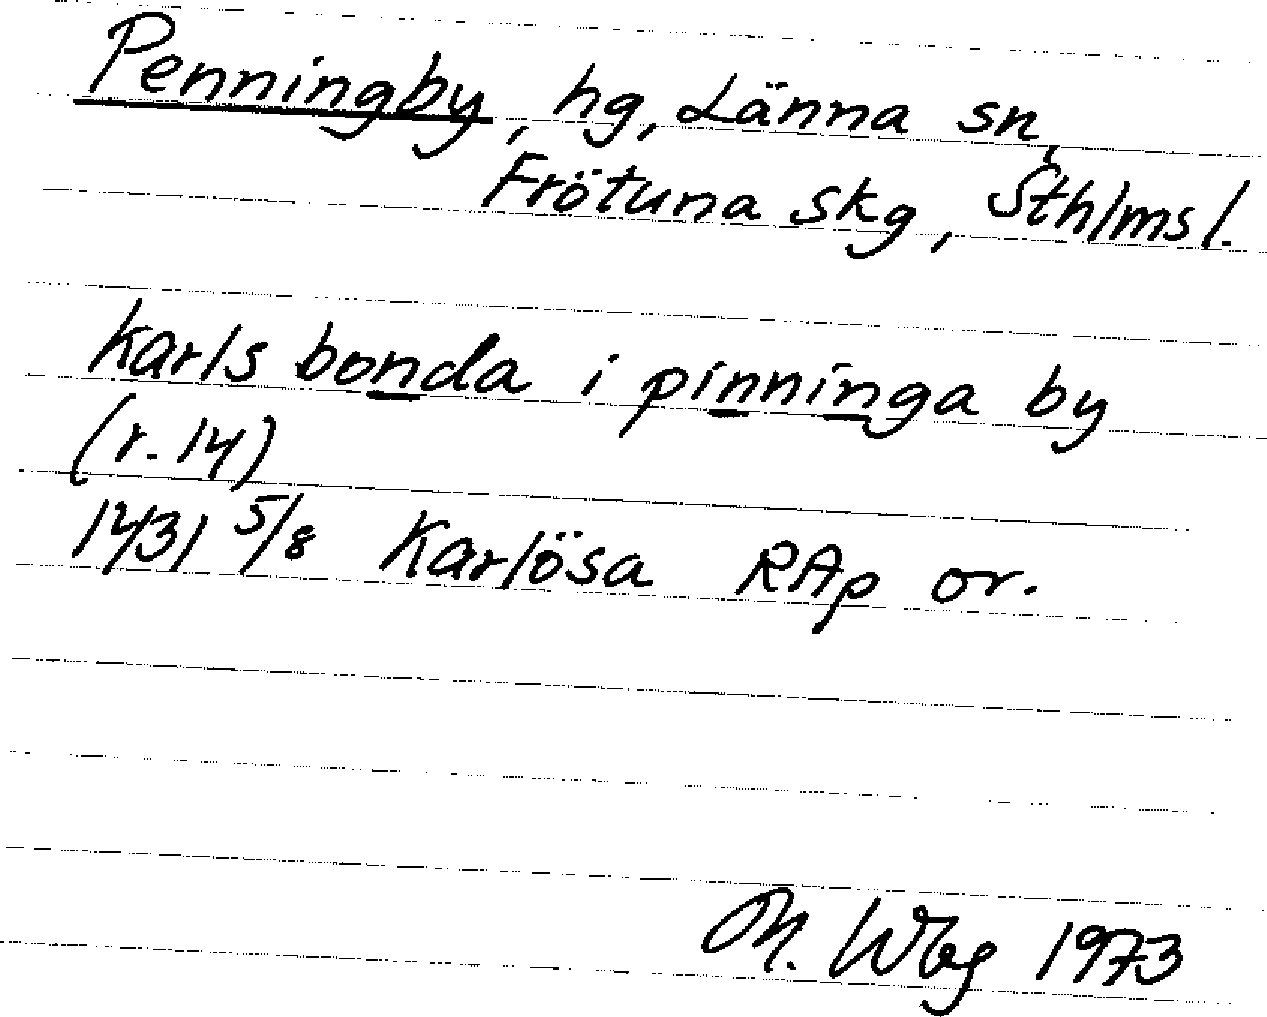 Penningby, hg, Länna sn,
Frötuna skg, Sthlms l.
karls bonda i pinninga by
(r. 14)
1431 5/8 Karlösa RAp or.
M. Wbg 1973